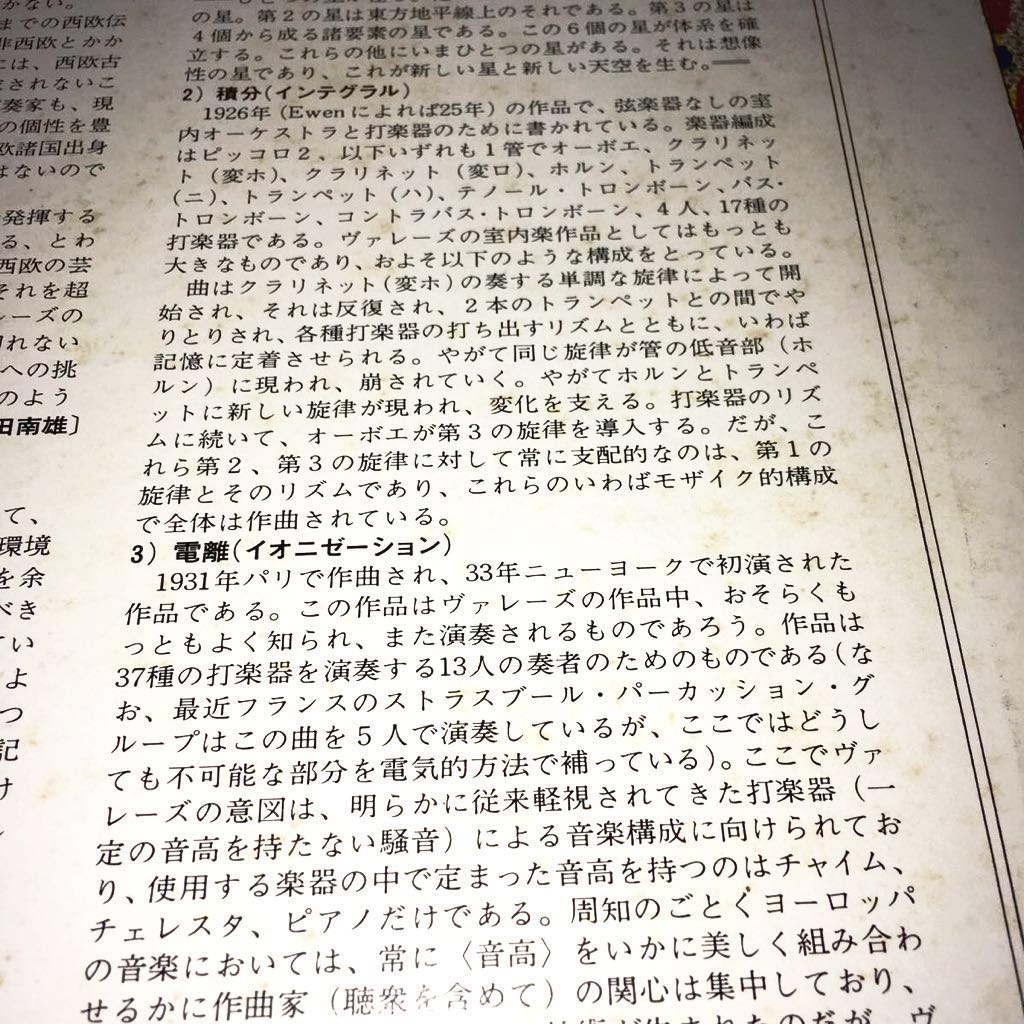 かない。
までの西欧伝
非西欧とかか
には、西欧古
されないこ
奏家も、現
の個性を豊
欧諸国出身
はないので
発揮する
る、とわ
西欧の芸
それを超
レーズの
れない
への挑
のよう
田南雄〕
て、
環境
を余
べき
てい
よ
つ
記
け
の星。第2の星は東方地平線上のそれである。第3の星は
4個から成る諸要素の星である。この6個の星が体系を確
立する。これらの他にいまひとつの星がある。それは想像
性の星であり、これが新しい星と新しい天空を生む。――
2）積分（インテグラル）
1926年（Ewenによれば25年）の作品で、弦楽器なしの室
内オーケストラと打楽器のために書かれている。楽器編成
はピッコロ2、以下いずれも1管でオーボエ、クラリネッ
ト（変ホ）、クラリネット（変ロ）、ホルン、トランペット
（ニ）、トランペット（ハ）、テノール・トロンボーン、バス・
トロンボーン、コントラバス・トロンボーン、4人、17種の
打楽器である。ヴァレーズの室内楽作品としてはもっとも
大きなものであり、およそ以下のような構成をとっている。
曲はクラリネット（変ホ）の奏する単調な旋律によって開
始され、それは反復され、2本のトランペットとの間でや
りとりされ、各種打楽器の打ち出すリズムとともに、いわば
記憶に定着させられる。やがて同じ旋律が管の低音部（ホ
ルン）に現われ、崩されていく。やがてホルンとトランペ
ットに新しい旋律が現われ、変化を支える。打楽器のリズ
ムに続いて、オーボエが第3の旋律を導入する。だが、こ
れら第2、第3の旋律に対して常に支配的なのは、第1の
旋律とそのリズムであり、これらのいわばモザイク的構成
で全体は作曲されている。
3）電離（イオニゼーション）
1931年パリで作曲され、33年ニューヨークで初演された
作品である。この作品はヴァレーズの作品中、おそらくも
っともよく知られ、また演奏されるものであろう。作品は
37種の打楽器を演奏する13人の奏者のためのものである（な
お、最近フランスのストラスブール・パーカッション・グ
ループはこの曲を5人で演奏しているが、ここではどうし
ても不可能な部分を電気的方法で補っている）。ここでヴァ
レーズの意図は、明らかに従来軽視されてきた打楽器（一
定の音高を持たない騒音）による音楽構成に向けられてお
り、使用する楽器の中で定まった音高を持つのはチャイム、
チェレスタ、ピアノだけである。周知のごとくヨーロッパ
の音楽においては、常に〈音高〉をいかに美しく組み合わ
せるかに作曲家（聴衆を含めて）の関心は集中しており、
が生まれたのだが、ヴ